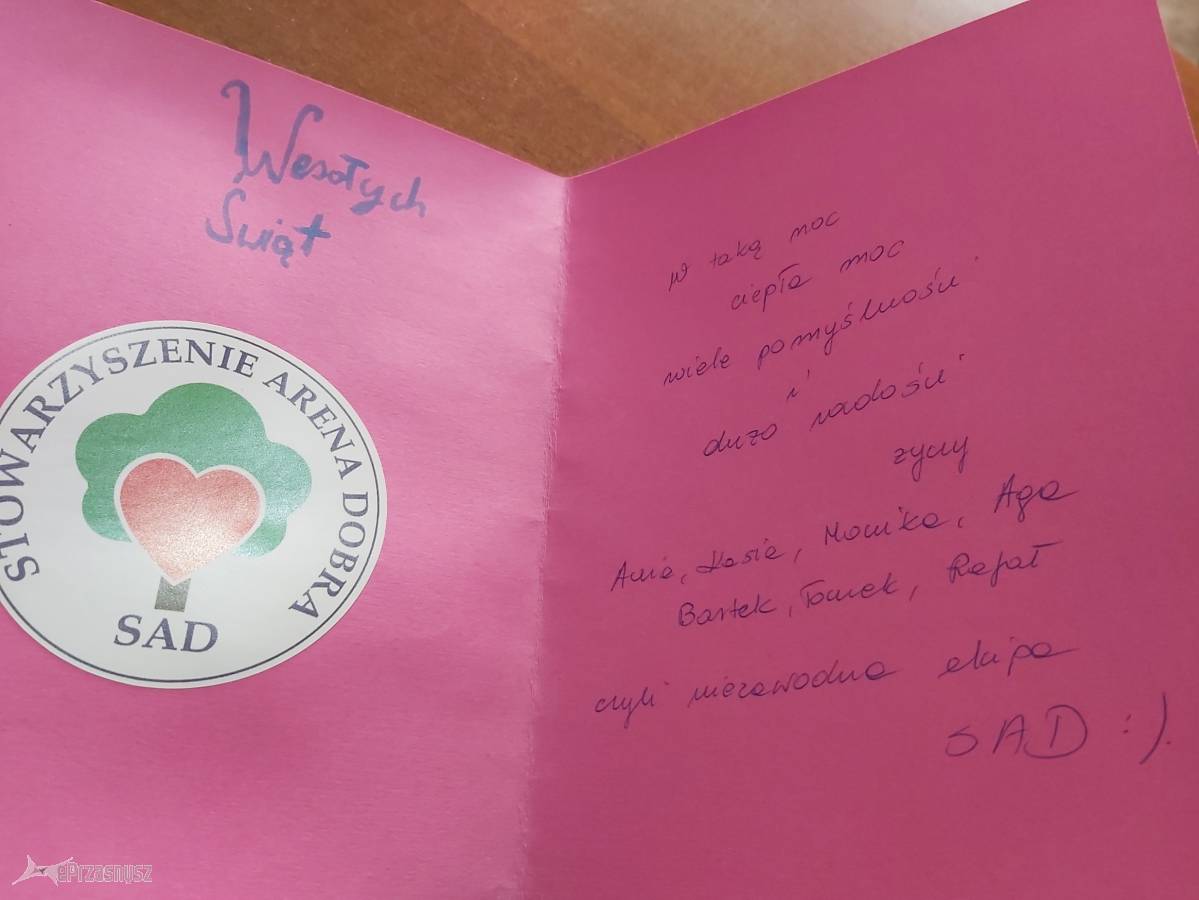 Wesołych
Świąt
STOWARZYSZENIE ARENA DOBRA
SAD
W taką noc
ciepła moc
wiele pomyślności
i
dużo radości
życzy
Ania, Kasia, Monika, Aga
Bartek, Tomek, Rafał
czyli niezawodna ekipa
SAD :).
ePrzasnysz